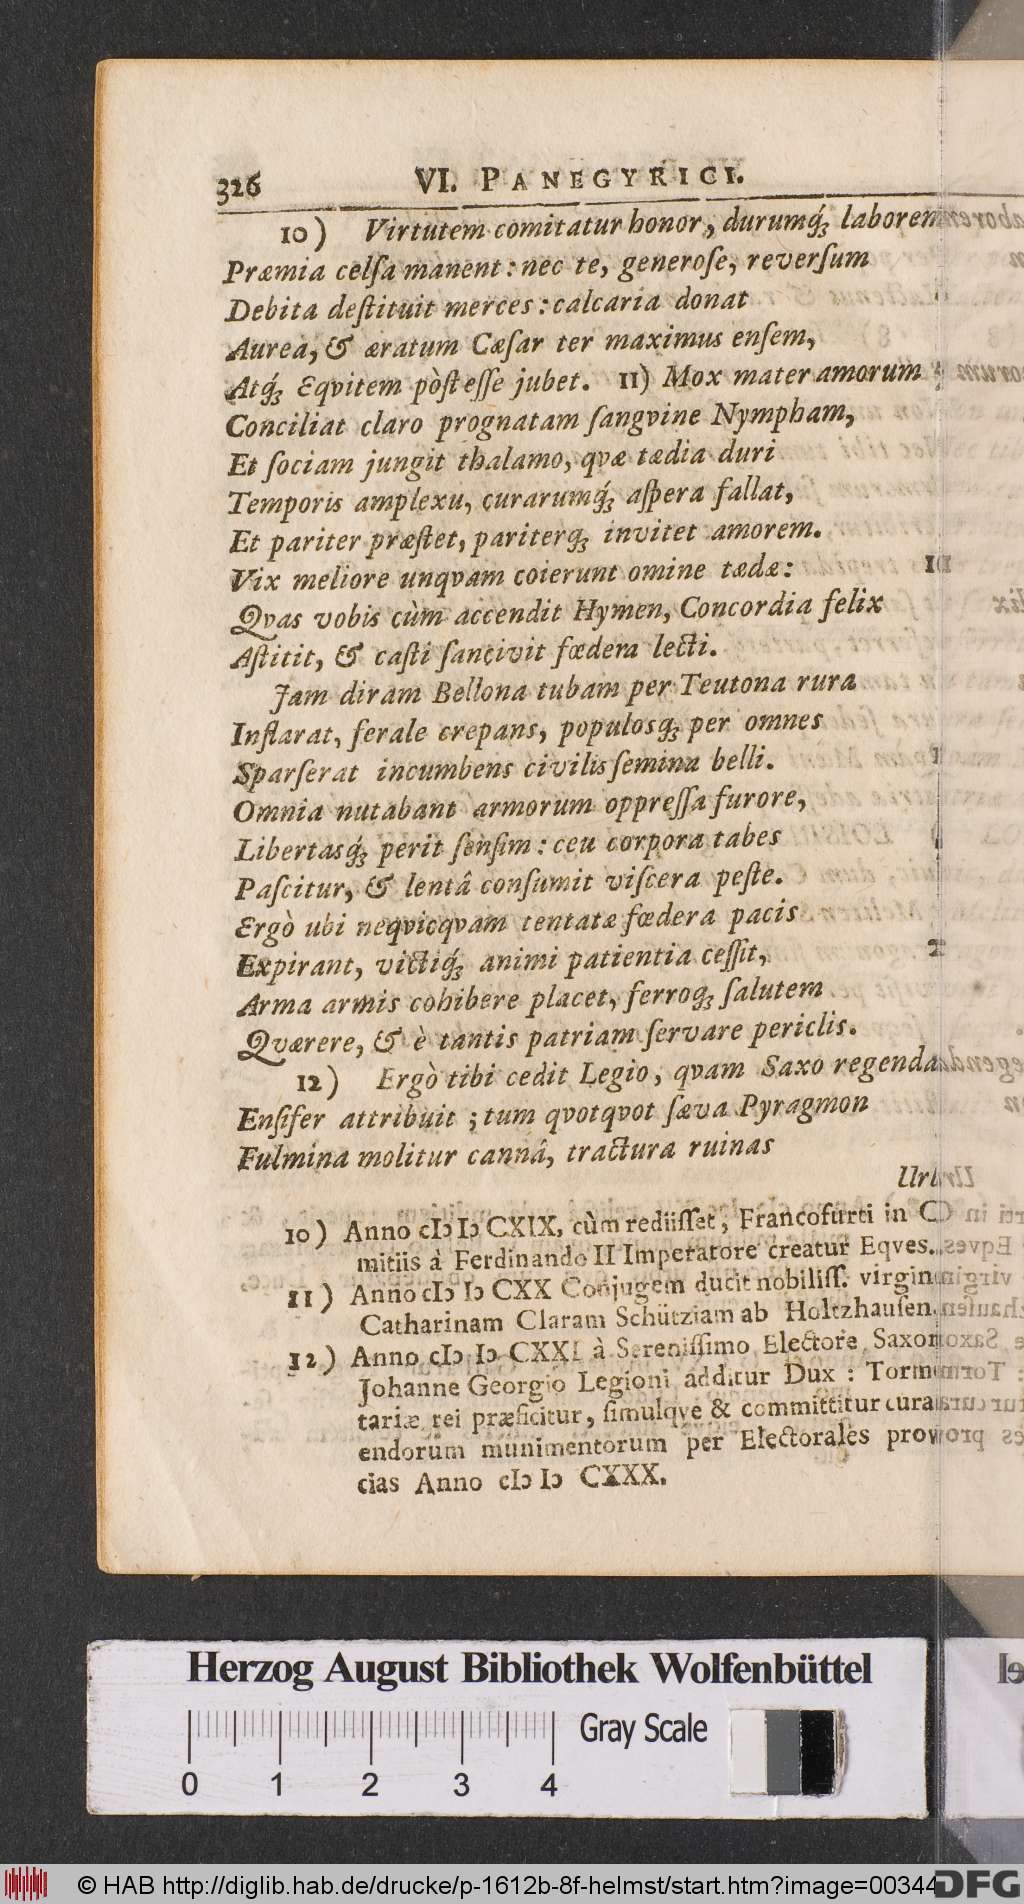 326 VI. PANEGYRICI.
10) Virtutem comitatur honor, durumq́ꝫ laborem
Præmia celſa manent: nec te, generoſe, reverſum
Debita deſtituit merces: calcaria donat
Aurea, & æratum Cæſar ter maximus enſem,
Atq́ꝫ Eqvitem pòſt eſſe jubet. 11) Mox mater amorum
Conciliat claro prognatam ſangvine Nympham,
Et ſociam jungit thalamo, qvæ tædia duri
Temporis amplexu, curarumq́ꝫ aſpera fallat,
Et pariter præſtet, pariterqꝫ invitet amorem.
Vix meliore unqvam coierunt omine tædæ:
Qvas vobis cùm accendit Hymen, Concordia felix
Aſtitit, & caſti ſancivit fœdera lecti.
Jam diram Bellona tubam per Teutona rura
Inflarat, ferale crepans, populosqꝫ per omnes
Sparſerat incumbens civilis ſemina belli.
Omnia nutabant armorum oppreſſa furore,
Libertasq́ꝫ perit ſenſim: ceu corpora tabes
Paſcitur, & lentâ conſumit viſcera peſte.
Ergò ubi neqvicqvam tentatæ fœdera pacis
Expirant, victiq́ꝫ animi patientia ceſſit,
Arma armis cohibere placet, ferroqꝫ ſalutem
Qværere, & è tantis patriam ſervare periclis.
12) Ergò tibi cedit Legio, qvam Saxo regendam
Enſifer attribuit; tum qvotqvot ſæva Pyragmon
Fulmina molitur cannâ, tractura ruinas
Urb
10) Anno cIɔ Iɔ CXIX, cùm rediiſſet, Francofurti in C
mitiis à Ferdinando II Imperatore creatur Eqves.
11) Anno cIɔ Iɔ CXX Conjugem ducit nobiliſſ. virgin
Catharinam Claram Schütziam ab Holtzhauſen.
12) Anno cIɔ Iɔ CXXI à Sereniſſimo Electore Saxon
Johanne Georgio Legioni additur Dux: Torm
tariæ rei præficitur, ſimulqve & committitur cura
endorum munimentorum per Electorales prov
cias Anno cIɔ Iɔ CXXX.
Herzog August Bibliothek Wolfenbüttel
Gray Scale
0 1 2 3 4
© HAB http://diglib.hab.de/drucke/p-1612b-8f-helmst/start.htm?image=00344
DFG